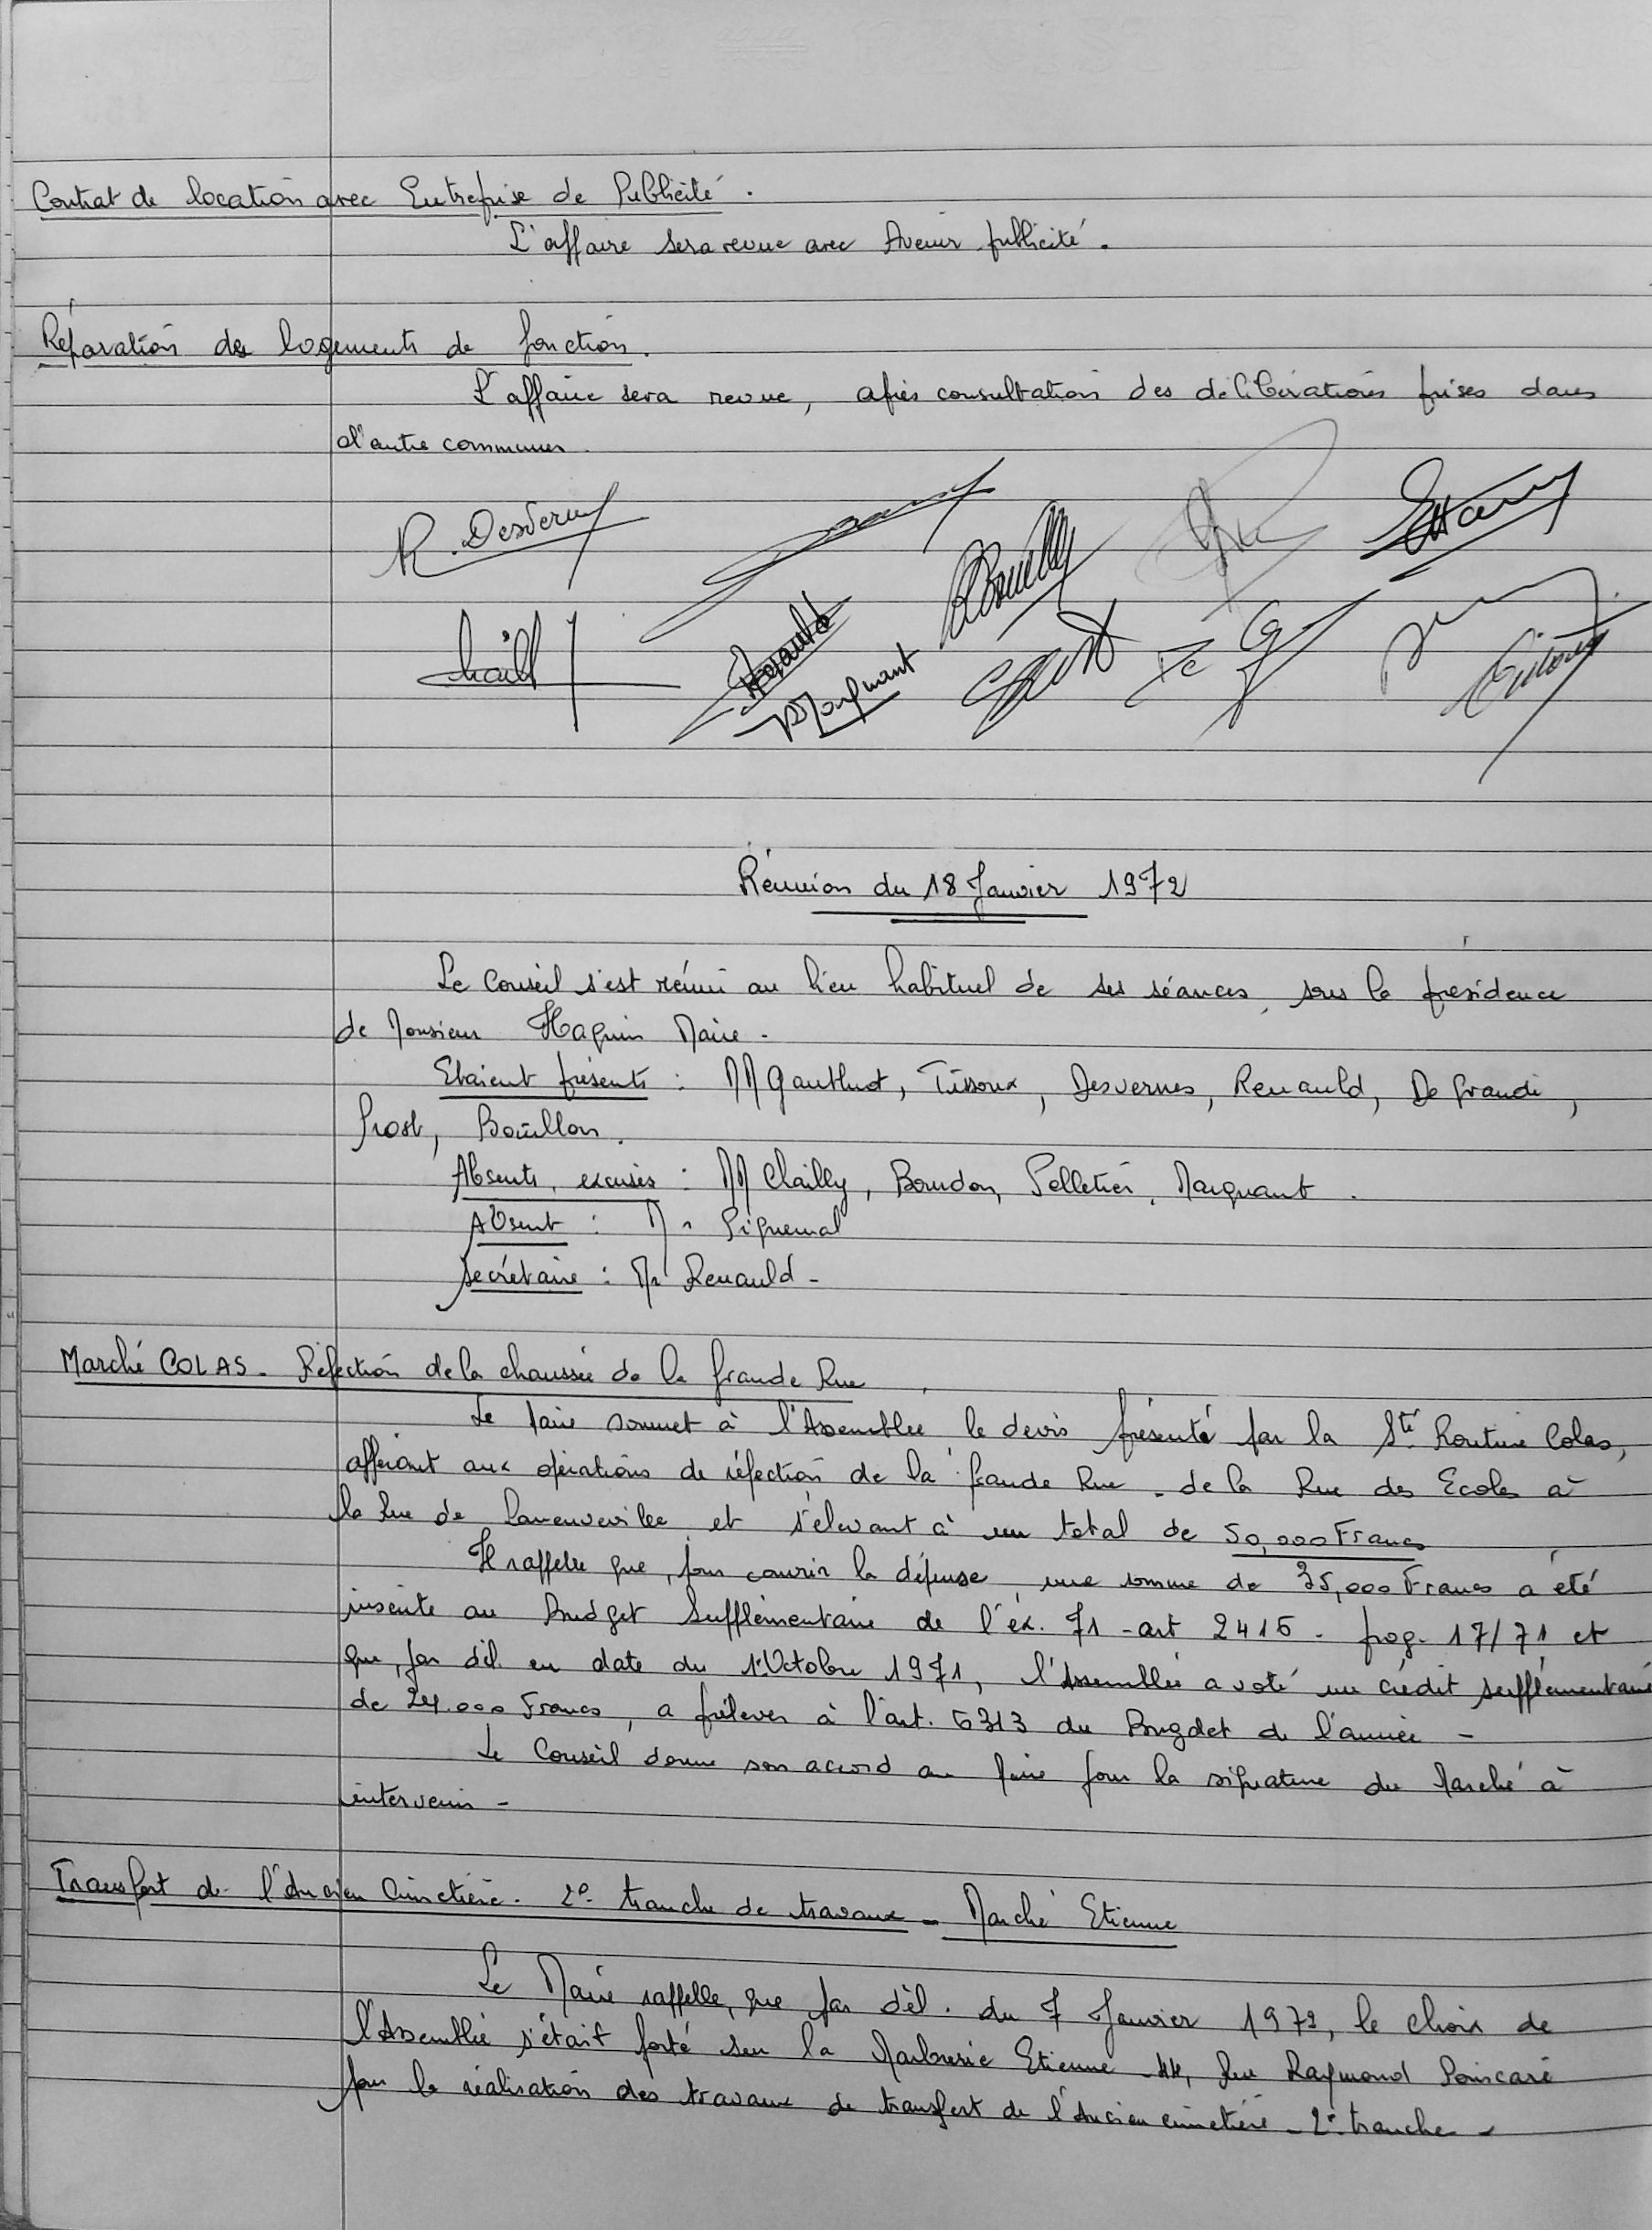 Contrat de location avec Entreprise de Publicité.
L'affaire sera revue avec Avenir publicité.
Réparation des logements de fonction.
L'affaire sera revue, après consultation des délibérations prises dans
d'autre communes.
R. Desvernes
Chailly
Renauld
Marquant
Réunion du 18 Janvier 1972
Le Conseil s'est réuni au lieu habituel de ses séances, sous la présidence
de Monsieur Haquin Maire.
Etaient présents : MM Gauthrot, Tissoux, Desvernes, Renauld, De Grandi,
Prost, Bouillon.
Absents, excusés : MM Chailly, Bourdon, Pelletier, Marquant.
Absent : Mr Piquemal
Secrétaire : Mr Renauld -
Marché COLAS - Réfection de la chaussée de la Grande Rue
Le Maire soumet à l'Assemblée le devis présenté par la Sté Routière Colas,
afférant aux opérations de réfection de la Grande Rue - de la Rue des Ecoles à
la Rue de Laneuveville et s'élevant à un total de 50,000 Francs
Il rappelle que, pour couvrir la dépense, une somme de 35,000 Francs a été
inscrite au Budget Supplémentaire de l'ex. 71 - art 2415 - prog. 17/71 et
que, par dél. en date du 1er Octobre 1971, l'Assemblée a voté un crédit supplémentaire
de 24.000 Francs, a prélever à l'art. 6313 du Bugdet de l'année -
Le Conseil donne son accord au Maire pour la signature du Marché à
intervenir -
Transfert de l'Ancien Cimetière. 2e tranche de travaux - Marché Etienne
Le Maire rappelle, que par dél. du 7 Janvier 1972, le choix de
l'Assemblée s'était porté sur la Marbrerie Etienne - 44, Rue Raymond Poincaré
pour la réalisation des travaux de transfert de l'Ancien cimetière - 2e tranche -